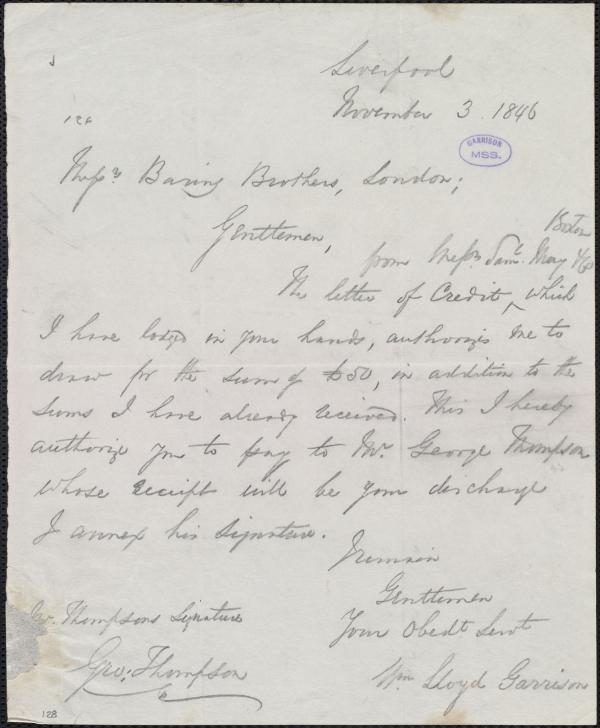 Liverpool
November 3. 1846
126
GARRISON
MSS.
Messrs Baring Brothers, London;
Gentlemen,
Boston
from Messrs Saml. May & Co
The letter of Credit, ^ which
I have lodged in your hands, authorizes me to
draw for the sum of £50, in addition to the
sums I have already received. This I hereby
authorize you to pay to Mr. George Thompson
whose receipt will be your discharge
I annex his signature.
I remain
Gentlemen
Your Obedt Servt
Wm Lloyd Garrison
Mr. Thompsons Signature
Geo: Thompson
128